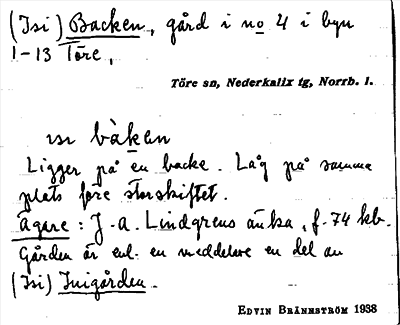 (Isi) Backen, gård i no 4 i byn
1-13 Töre,
Töre sn, Nederkalix tg, Norrb. l.
isi bàkan
Ligger på en backe. Låg på samma
plats före storskiftet.
Ägare: J. A. Lindgrens änka, f. 74 kb.
Gården är enl. en meddelare en del av
(Isi) Inigården.
EDVIN BRÄNNSTRÖM 1938